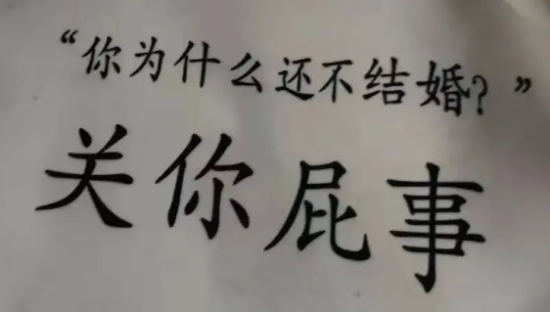 “你为什么还不结婚？”
关你屁事